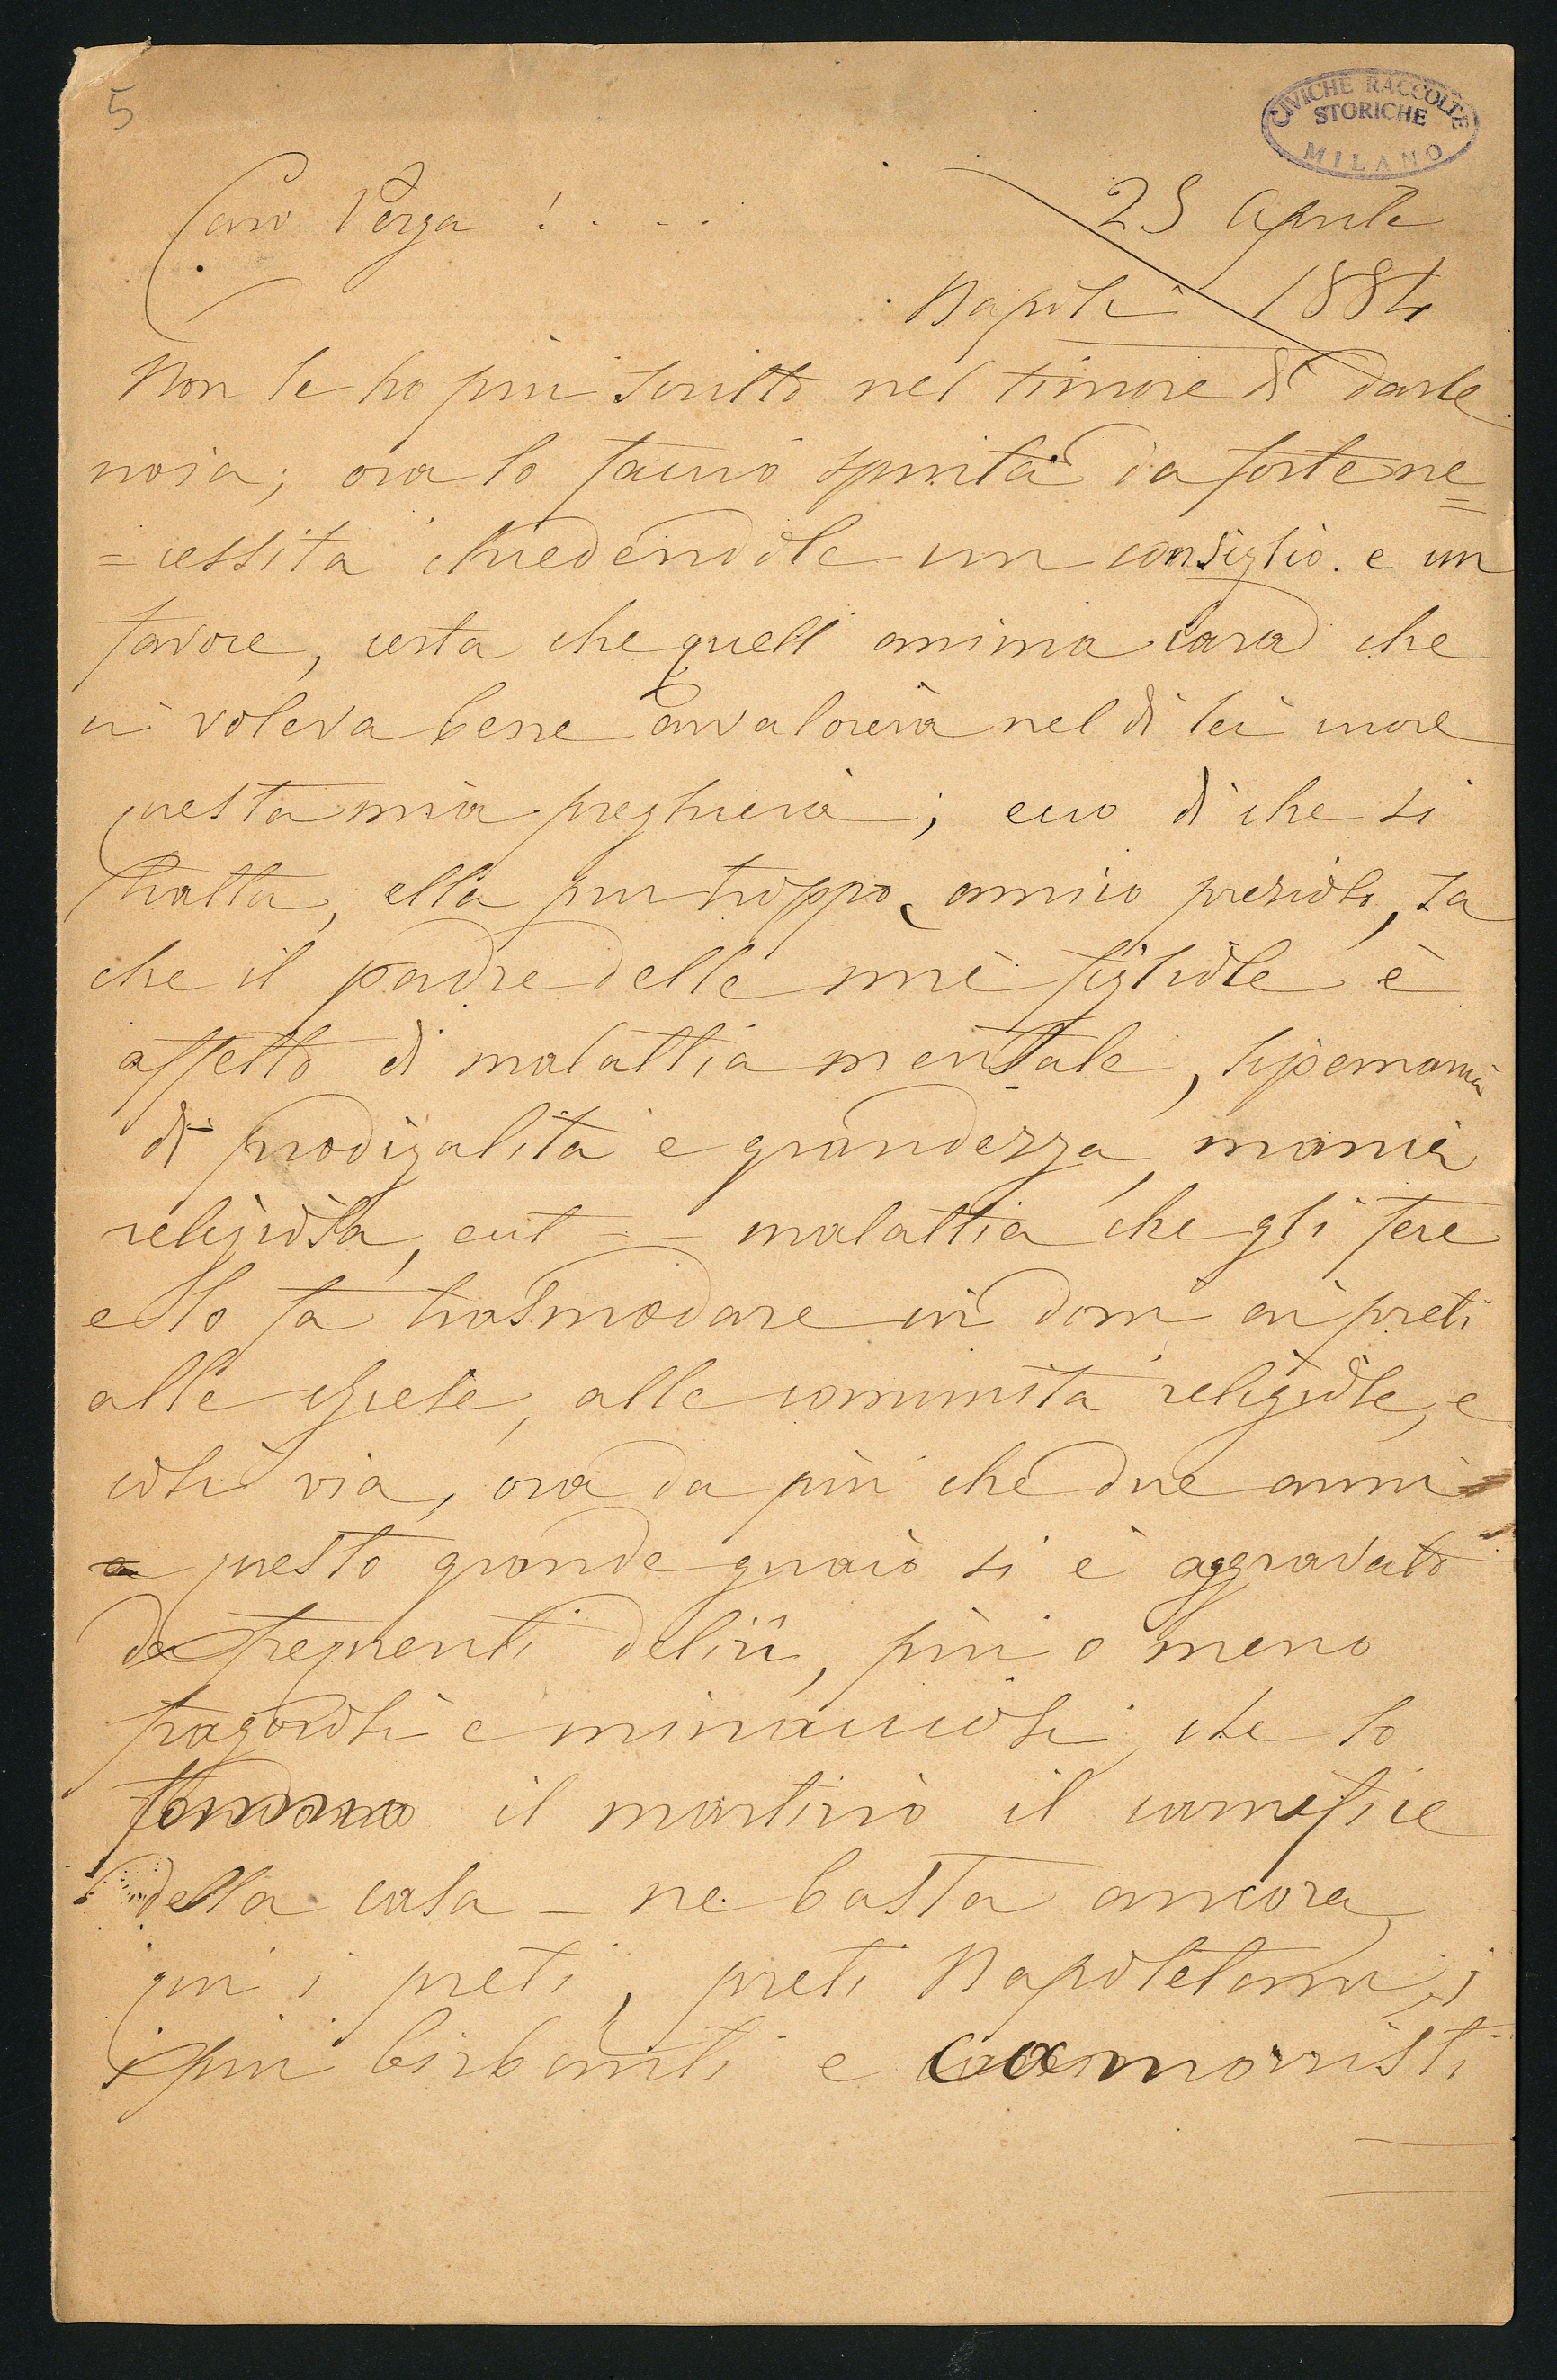 5
CIVICHE RACCOLTE
STORICHE
MILANO
Caro Verga !....
25 Aprile
Napoli 1884
Non le ho più scritto nel timore di darle
noia; ora lo faccio spinta da forte ne=
=cessità chiedendole un consiglio e un
favore, certa che quell anima cara che
ci voleva bene avvalorerà nel di lei cuore
questa mia preghiera; ecco di che si
tratta, ella pur troppo, amico prezioso, sa
che il padre delle mie figliole è
affetto di malattia mentale, lipemania
di prodigalità e grandezza, mania
religiosa, ect - - malattia che gli fece
e lo fa trasmodare in doni ai preti
alle chiese, alle comunità religiose, e
così via, ora da più che due anni
questo grande guaio si è aggravato
da frequenti delirii, più o meno
fragorosi e minacciosi, che lo
fanno il martirio il carnefice
della casa - ne basta ancora,
qui i preti, preti Napoletani, i
più birbanti e camorristi